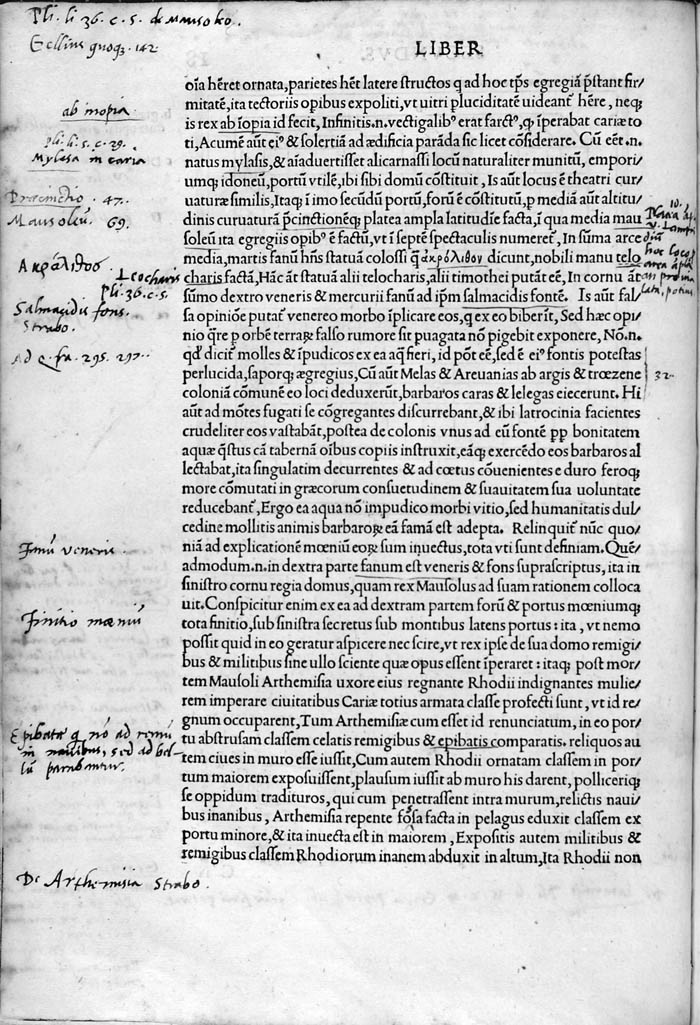 Pli. li 36. c. 5. de Mausolo.
Gellius quoqꝫ. 142
LIBER
oīa hēret ornata,parietes hēt latere structos q ad hoc tp̄s egregiā p̄stant fir/
mitatē,ita tectoriis opibus expoliti,vt uitri pluciditatē uideant̄ hēre, neqꝫ
ab inopia
is rex ab īopia id fecit, Infinitis.n.vectigalibꝰ erat farctꝰ,q̨ īperabat cariæ to
ti,Acumē aūt eiꝰ & solertiā ad ædificia parāda sic licet cōsiderare. Cū eēt.n.
pli. li. 5. c. 29.
Mylasa in caria
natus mylasis,& aīaduertisset alicarnassi locū naturaliter munitū, empori/
umqꝫ idoneū,portū vtilē,ibi sibi domū cōstituit, Is aūt locus ē theatri cur/
Præcinctio . 47.
uaturæ similis,Itaqꝫ ī imo secūdū portū,forū ē cōstitutū,p mediā aūt altitu/
Mausoleū. 69.
dinis curuaturā p̄cinctionēqꝫ platea ampla latitudīe facta,ī qua media mau
soleū ita egregiis opibꝰ ē factū,vt ī septē spectaculis numeret̄, In sūma arce
10.
Ακρόλιθος
media,martis fanū hn̄s statuā colossi q̄ ἀκρόλιθον dicunt,nobili manu telo
hoc loco
Leocharis
Pli. 36. c. 5.
charis factā,Hāc āt statuā alii telocharis,alii timothei putāt eē, In cornu āt
Salmacidis fons.
Strabo.
sūmo dextro veneris & mercurii fanū ad ip̄m salmacidis fontē. Is aūt fal/
sa opiniōe putat̄ venereo morbo īplicare eos,q ex eo biberīt, Sed hæc opi/
nio q̄re p orbē terraꝝ falso rumore sit puagata nō pigebit exponere, Nō.n.
Ad Q. fra. 295. 297.
qd̓ dicit̄ molles & īpudicos ex ea aq̄ fieri, id pōt eē,sed ē eiꝰ fontis potestas
perlucida,saporqꝫ ægregius,Cū aūt Melas & Areuanias ab argis & trœzene
32.
coloniā cōmunē eo loci deduxerūt,barbaros caras & lelegas eiecerunt. Hi
aūt ad mōtes fugati se cōgregantes discurrebant,& ibi latrocinia facientes
crudeliter eos vastabāt,postea de colonis vnus ad eū fontē pp̄ bonitatem
aquæ q̄stus cā tabernā oībus copiis instruxit,eāqꝫ exercēdo eos barbaros al
lectabat,ita singulatim decurrentes & ad cœtus cōuenientes e duro feroqꝫ
more cōmutati in græcorum consuetudinem & suauitatem sua uoluntate
reducebant̄,Ergo ea aqua nō impudico morbi vitio,sed humanitatis dul/
cedine mollitis animis barbaroꝝ eā famā est adepta. Relinquit̄ nūc quo/
Fanū veneris.
niā ad explicationē mœniū eoꝝ sum inuectus,tota vti sunt definiam. Quē
admodum.n.in dextra parte fanum est veneris & fons suprascriptus, ita in
sinistro cornu regia domus,quam rex Mausolus ad suam rationem colloca
uit.Conspicitur enim ex ea ad dextram partem forū & portus mœniumqꝫ
Finitio mœniū
tota finitio,sub sinistra secretus sub montibus latens portus : ita , vt nemo
possit quid in eo geratur aspicere nec scire,vt rex ipse de sua domo remigi/
bus & militibus sine ullo sciente quæ opus essent īperaret : itaqꝫ post mor/
tem Mausoli Arthemisia uxore eius regnante Rhodii indignantes mulie/
rem imperare ciuitatibus Cariæ totius armata classe profecti sunt , vt id re/
gnum occuparent,Tum Arthemisiæ cum esset id renunciatum, in eo por/
Epibatæ q nō ad remū
in nauibus, sed ad bel-
lū parabantur.
tu abstrusam classem celatis remigibus & epibatis comparatis. reliquos au
tem ciues in muro esse iussit,Cum autem Rhodii ornatam classem in por/
tum maiorem exposuissent,plausum iussit ab muro his darent, pollicerīqꝫ
se oppidum tradituros, qui cum penetrassent intra murum,relictis naui/
bus inanibus , Arthemisia repente fossa facta in pelagus eduxit classem ex
portu minore,& ita inuecta est in maiorem , Expositis autem militibus &
remigibus classem Rhodiorum inanem abduxit in altum,Ita Rhodii non
De Arthemisia Strabo.